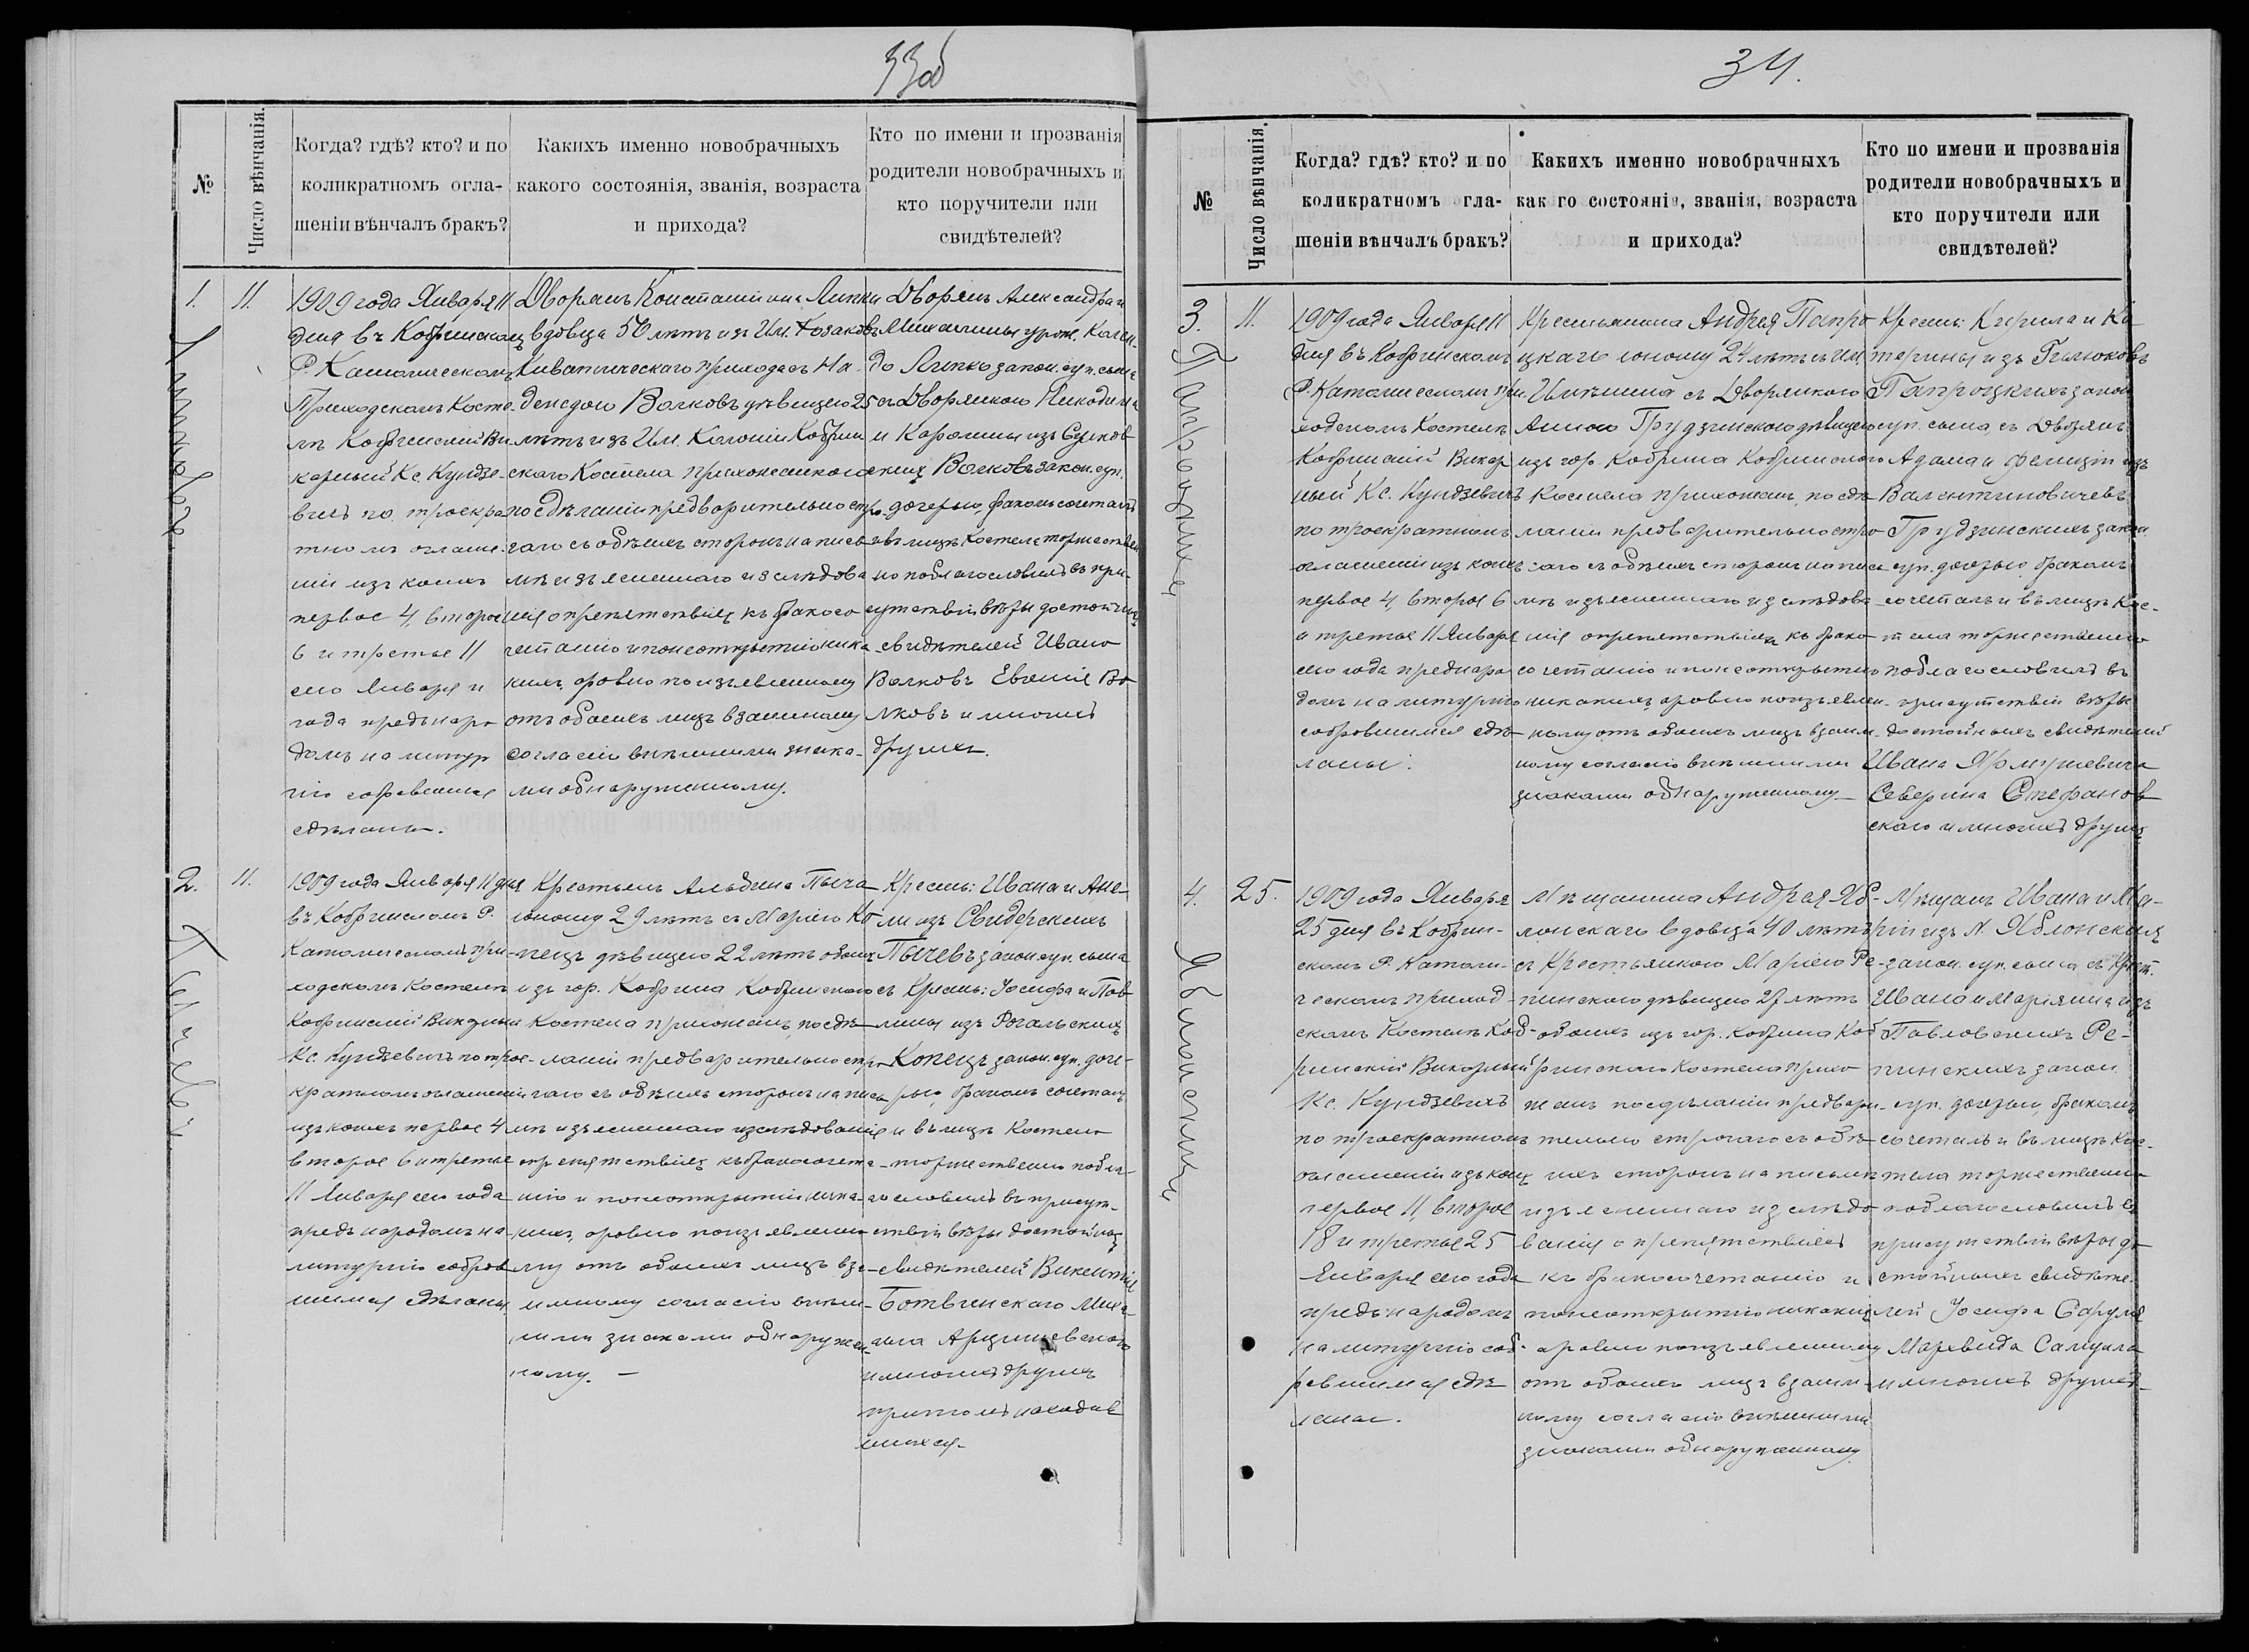 33об
№
Число вѣнчанія.
Когда? гдѣ? кто? и по
коликратномъ огла-
шеніи вѣнчалъ бракъ?
Какихъ именно новобрачныхъ
какого состоянія, званія, возраста
и прихода?
Кто по имени и прозванія
родители новобрачныхъ и
кто поручители или
свидѣтелей?
1.
11.
1909 года Января 11
дня въ Кобринскомъ
Р. Католическомъ
Приходскомъ Косте-
лѣ Кобринскій Ви
карный Кс. Кундзе-
вичъ по троекра
тномъ оглаше-
ніи изъ коихъ
первое 4, второе
6 и третье 11
сего Января и
года предъ наро
домъ на литур
гію собравшимся
сдѣланы.
Дворянъ Константина Липки
вдовца 50 лѣтъ изъ Им. Козаковъ
Киватическаго прихода съ На-
деждою Волковъ дѣвицею 25
лѣтъ изъ Им. Колоніи Кобрин
скаго Костела прихожанскою
по сдѣланіи предворительно стро
гаго съ обѣихъ сторонъ на пись
мѣ изъясненнаго изслѣдова
нія о препятствіяхъ къ бракосо
четанію и по неоткрытію ника
кихъ, аровно по изъявленному
отъ обоихъ лицъ взаимному
согласію внѣшними знака-
ми обнаруженному.
Дворянъ Александра и
Михалины урож.
до Липко закон. суп. сына
съ Дворянкою Никодима
и Каролины изъ
скихъ Волковъ закон. суп.
дочерью, бракомъ сочеталъ
и въ лицѣ Костела торжествен
но поблагословилъ въ при-
сутствіи вѣры достойныхъ
свидѣтелей Ивана
Волковъ Евгенія Во
лковъ и многихъ
другихъ.
2.
11.
1909 года Января 11 дня
въ Кобринскомъ Р.
Католическомъ при-
ходскомъ Костелѣ
Кобринскій Викарный
Кс. Кундзевичъ по трое-
кратномъ оглашеніи
изъ коихъ первое 4
второе 6 и третье
11 Января сего года
предъ народомъ на
литургію собрав
шимся сдѣланы
Крестьянъ Альбина Пыча
юношу 29 лѣтъ съ Маріею Ко
пецъ дѣвицею 22 лѣтъ обоихъ
изъ гор. Кобрина Кобринскаго
Костела прихожанъ, по сдѣ-
ланіи предварительно стро-
гаго съ обѣихъ сторонъ на пись
мѣ изъясненнаго изслѣдованія
о препятствіяхъ къ бракосочета-
нію и по неоткрытіи ника-
кихъ, аровно по изъявленно
му отъ обоихъ лицъ вза-
имному согласію внѣш-
ними знаками обнаружен-
ному. —
Кресть: Ивана и Ане-
ли изъ Свидерскихъ
Пычевъ закон. суп. сына
съ Кресть: Іосифа и Пав
лины изъ Рогальскихъ
Копецъ закон. суп. доче-
рью, бракомъ сочеталъ
и въ лицѣ Костела
торжественно побла-
гословилъ въ присут-
ствіи вѣры достойныхъ
свидѣтелей Викентія
Ботвинскаго Миха-
ила Арцишевскаго
и многихъ другихъ
притомъ находив
шихся
34.
№
Число вѣнчанія.
Когда? гдѣ? кто? и по
коликратномъ огла-
шеніи вѣнчалъ бракъ?
Какихъ именно новобрачныхъ
как го состоянія, званія, возраста
и прихода?
Кто по имени и прозванія
родители новобрачныхъ и
кто поручители или
свидѣтелей?
3.
Папроцкихъ
11.
1909 года Января 11
дня въ Кобринскомъ
Р. Католическомъ при
ходскомъ Костелѣ
Кобринскій Викар
ный Кс. Кундзевичъ
по троекратномъ
оглашеніи изъ коихъ
первое 4, второе 6
и третье 11 Января
сего года предъ наро
домъ на литургію
собравшимся сдѣ
ланы.
Крестьянина Андрея Папро
цкаго юношу 24 лѣтъ съ Им.
съ Дворянкою
Анною Грудзинскою дѣвицею
изъ гор. Кобрина Кобринскаго
Костела прихожан, по сдѣ
ланіи предварительно стро
гаго съ обѣихъ сторон на пись
мѣ изъясненнаго изслѣдова
нія о препятствіяхъ къ брако
сочетанію и по неоткрытію
никакихъ, аровно по изъявлен-
ному отъ обоихъ лицъ взаим-
ному согласію внѣшними
знаками обнаруженному —
Кресть: Кирила и Ка
терины изъ
Папроцкихъ закон
суп. сына, съ Дворянъ
Адама и Фелиціи изъ
Валентиновичевъ
Грудзинскихъ закон
суп. дочерью бракомъ
сочеталъ и въ лицѣ Кос-
тела торжественно
поблагословилъ въ
присутствіи вѣры
достойныхъ свидѣтелей
Ивана Ярмушевича
Северина Стефанов
скаго и многихъ другихъ
4.
Яблонскихъ
25.
1909 года Января
25 дня въ Кобрин-
скомъ Р. Католи-
ческомъ приход-
скомъ Костелѣ Коб-
ринскій Викарный
Кс. Кундзевичъ
по троекратномъ
оглашеніи изъ коихъ
первое 11, второе
18 и третье 25
Января сего года
предъ народомъ
на литургію соб-
равшимся сдѣ
ланы.
Мѣщанина Андрея Яб-
лонскаго вдовца 40 лѣтъ
съ Крестьянкою Маріею Ре-
пинскою дѣвицею 27 лѣтъ
обоихъ изъ гор. Кобрина Коб
ринскаго Костела прихо
жанъ по сдѣланіи предвари-
тельно строгаго съ обѣ-
ихъ сторонъ на письмѣ
изъясненнаго изслѣдо
ванія о препятствіяхъ
къ бракосочетанію и
по неоткрытію никакихъ
аровно по изъявленному
отъ обоихъ лицъ взаим-
ному согласію внѣшними
знаками обнаруженному.
Мѣщанъ Ивана и Ма-
ріи изъ N. Яблонскихъ
закон. суп. сына съ Крест.
Ивана и Маріянна изъ
Павловскихъ Ре-
пинскихъ закон.
суп. дочерью, бракомъ
сочеталъ и въ лицѣ Кос-
тела торжественно
поблагословилъ въ
присутствіи вѣры до
стойныхъ свидѣте-
лей Іосифа
Самуила
и многихъ другихъ